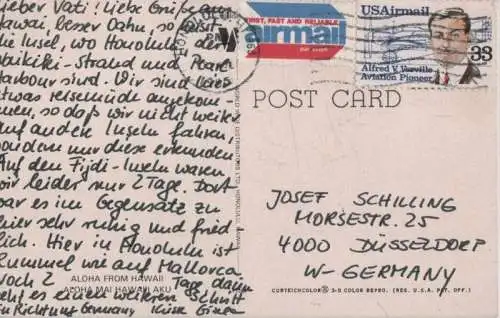 Lieber Vati! Liebe Grüße aus
Hawaii, besser Oahu, so heißt
die Insel, wo Honolulu, der
Waikiki-Strand und Pearl
Harbour sind. Wir sind leicht
etwas reisemüde angekom-
men, so daß wir nicht weiter
auf andere Inseln fahren,
sondern nur diese erkunden.
Auf den Fijdi-Inseln waren
wir leider nur 2 Tage. Dort
war es im Gegensatz zu
hier sehr ruhig und fried
lich. Hier in Honolulu ist
Rummel wie auf Mallorca.
Noch 2 Tage, dann
geht es einen weiteren Schritt
in Richtung Germany
ALOHA FROM HAWAII
ALOHA MAI HAWAII AKU
HONOLULU
FIRST, FAST AND RELIABLE
airmail
USAirmail
Alfred V. Verville
Aviation Pioneer
33
POST CARD
JOSEF SCHILLING
MORSESTR. 25
4000 DÜSSELDORF
W-GERMANY
CURTEICHCOLOR® 3-D COLOR REPRO. (REG. U.S.A. PAT. OFF.)